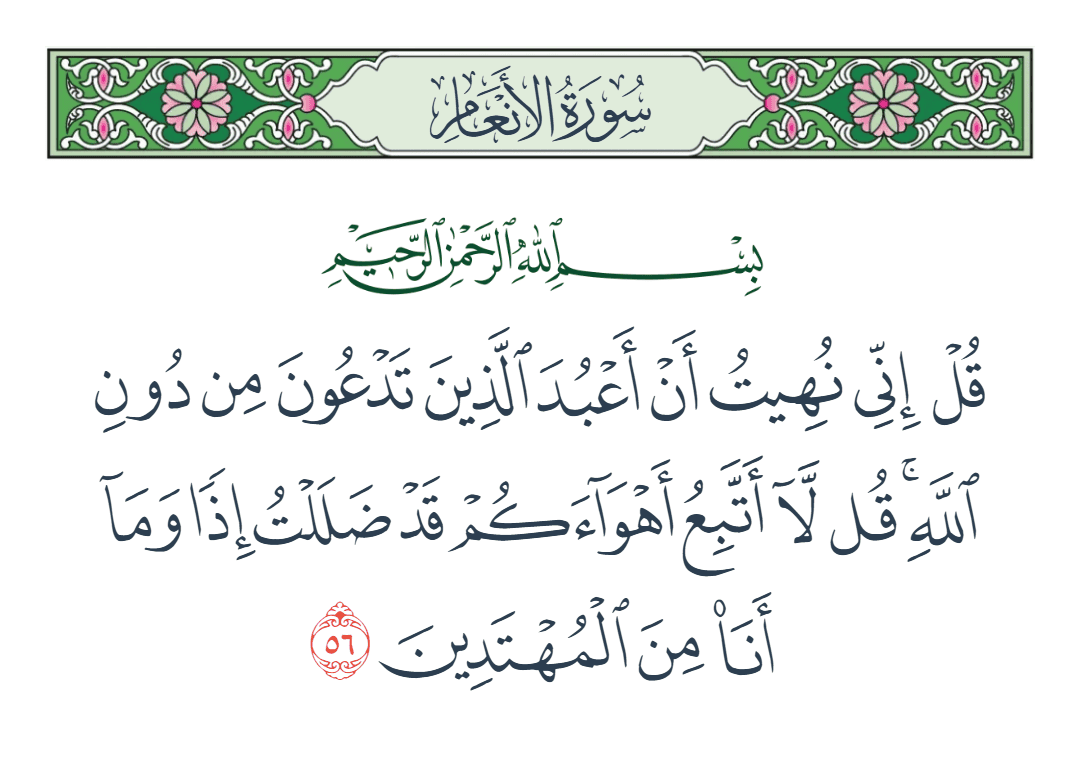 سُورَةُ الأَنْعَامِ
بِسْمِ ٱللَّهِ ٱلرَّحْمَٰنِ ٱلرَّحِيمِ
قُلْ إِنِّى نُهِيتُ أَنْ أَعْبُدَ ٱلَّذِينَ تَدْعُونَ مِن دُونِ
ٱللَّهِ ۚ قُل لَّآ أَتَّبِعُ أَهْوَآءَكُمْ قَدْ ضَلَلْتُ إِذًا وَمَآ
أَنَا۠ مِنَ ٱلْمُهْتَدِينَ ٥٦